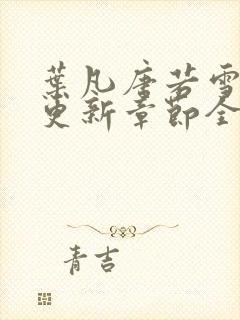 葉凡唐若雪
更新章節全
青吉